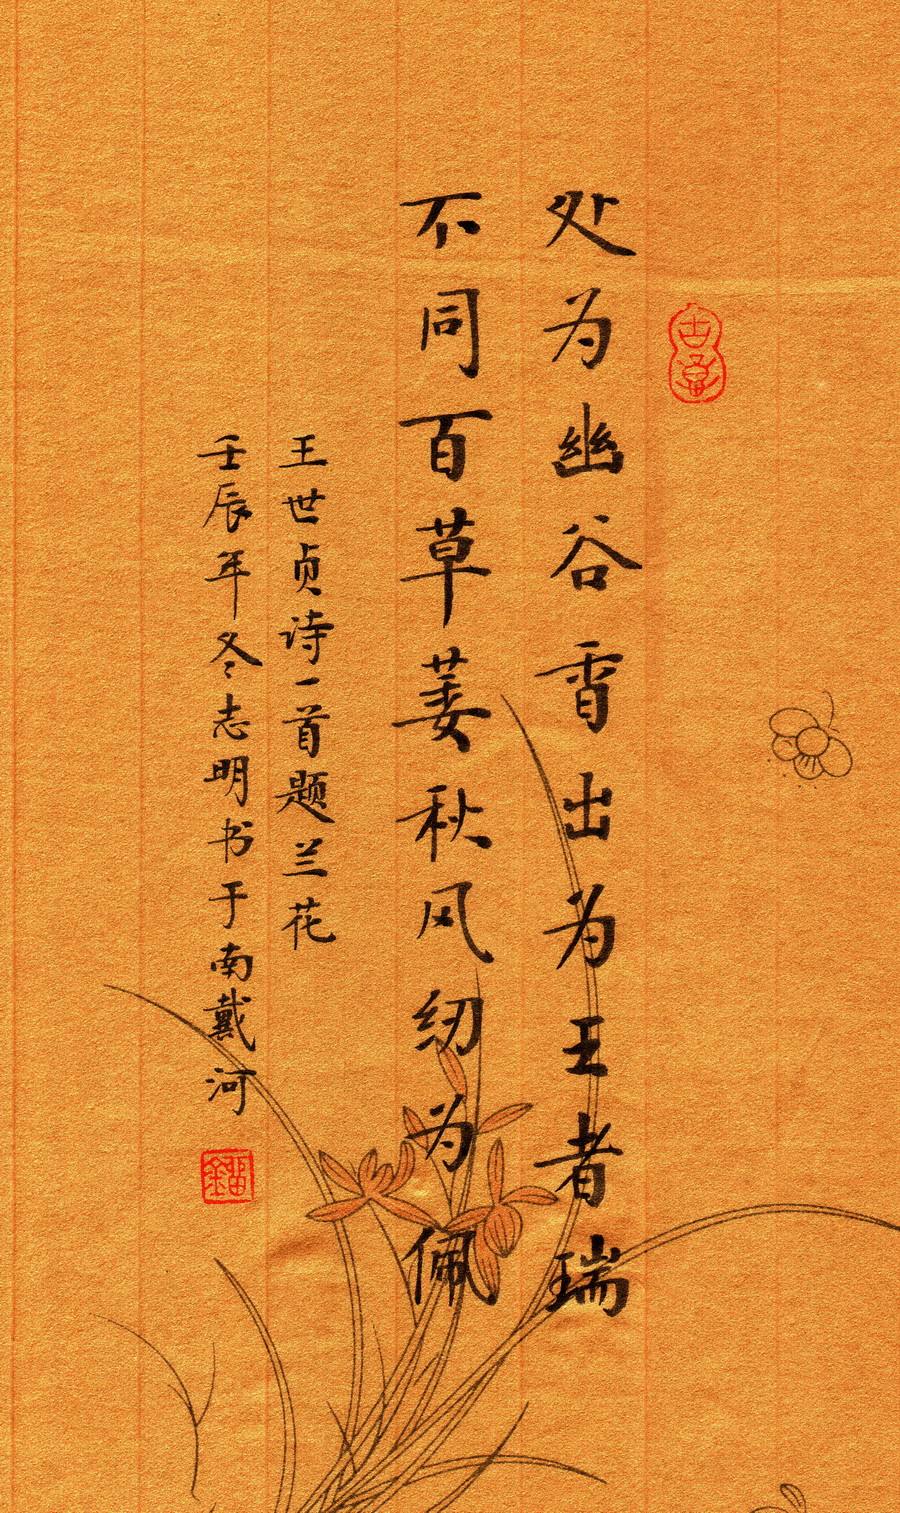 处为幽谷香出为王者瑞
不同百草萎秋风纫为佩
王世贞诗一首题兰花
壬辰年冬志明书于南戴河